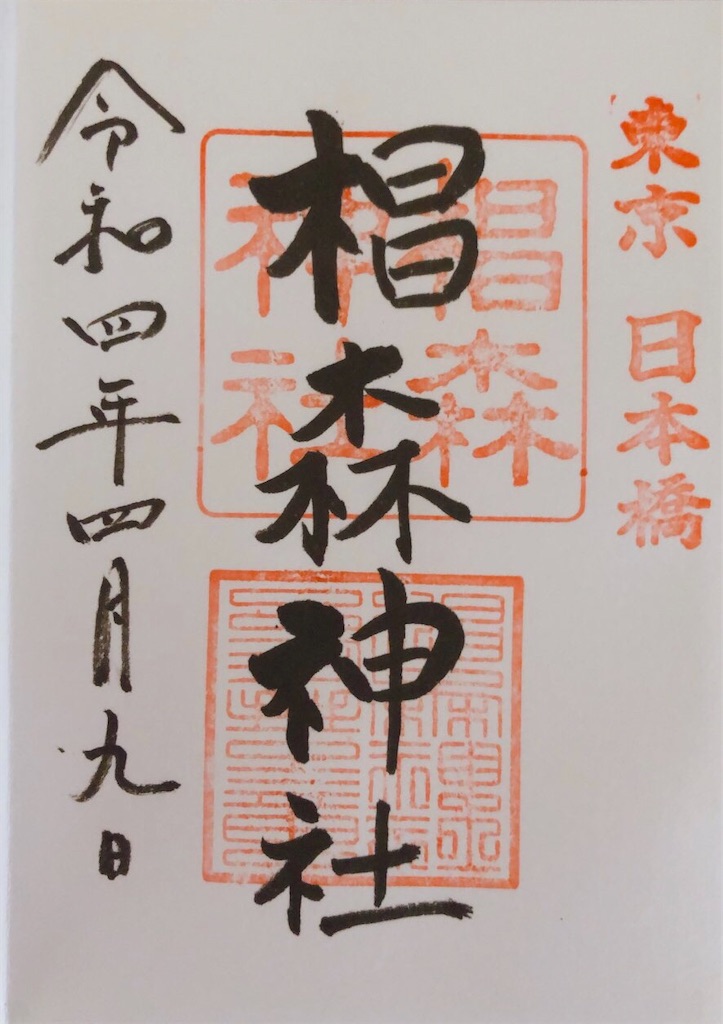 東京 日本橋
椙森神社
椙森
神社
令和四年四月九日